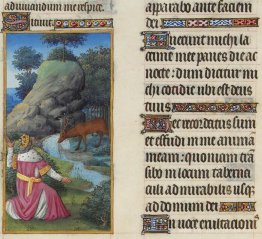 adiuvandum me respice.
apparebo ante faciem
dei
Fuerunt michi la
crime mee panes die ac
nocte: dum dicitur mi
chi cotidie ubi est deus
tuus
Hec recordatus sum
et effudi in me animam
meam: quoniam tran
sibo in locum taberna
culi admirabilis usq
ad domum dei
In voce exultacionis